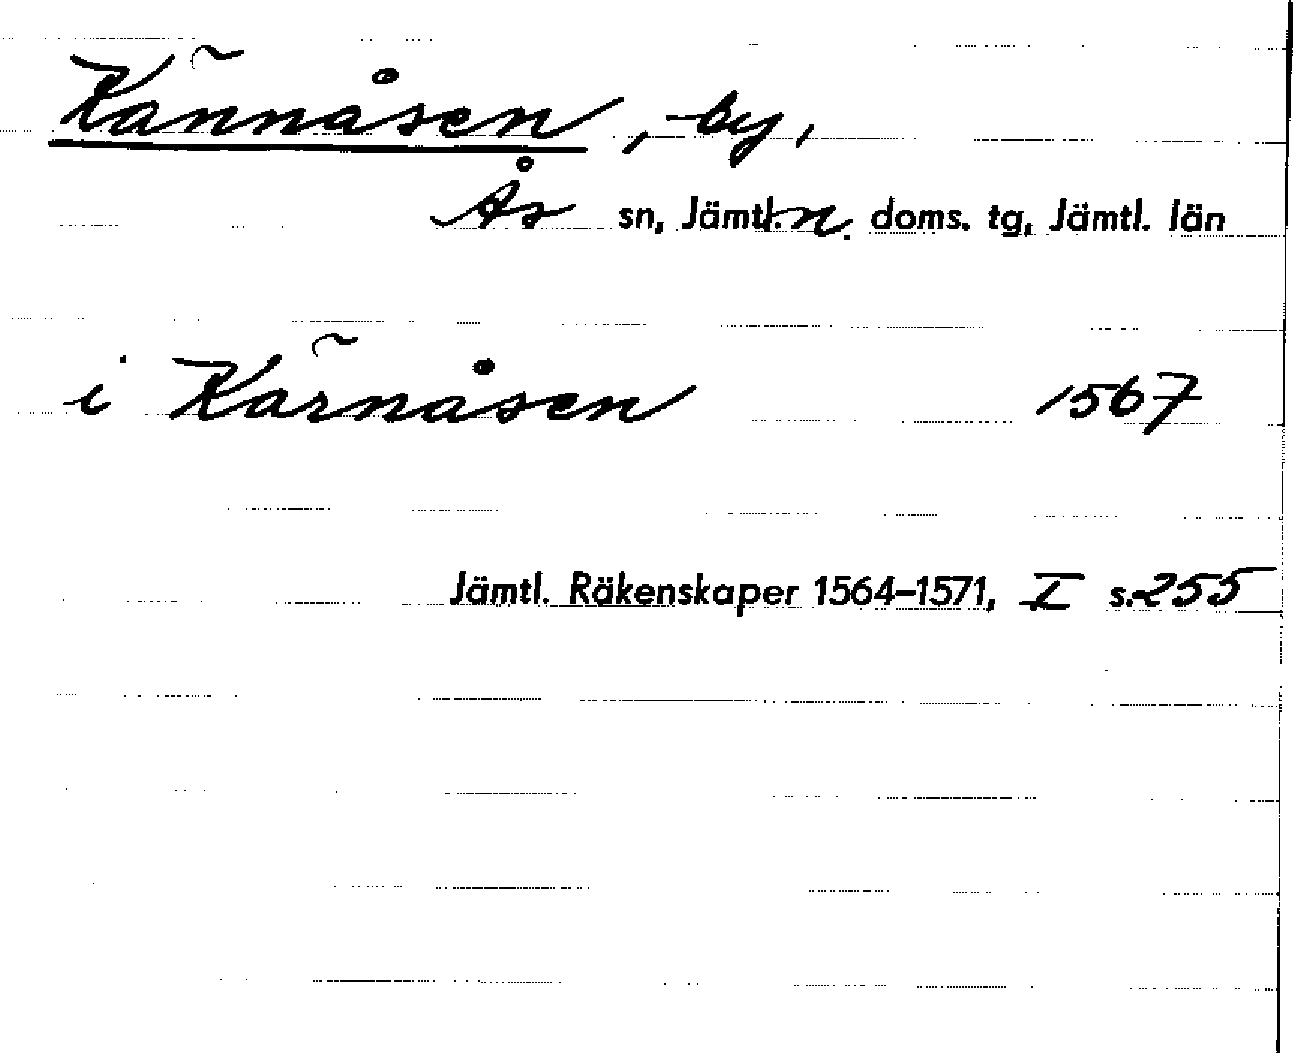 Kännåsen, by,
Ås sn, Jämtl. n. doms. tg, Jämtl. län
i Kärnåsen 1567
Jämtl. Räkenskaper 1564–1571, I s. 255